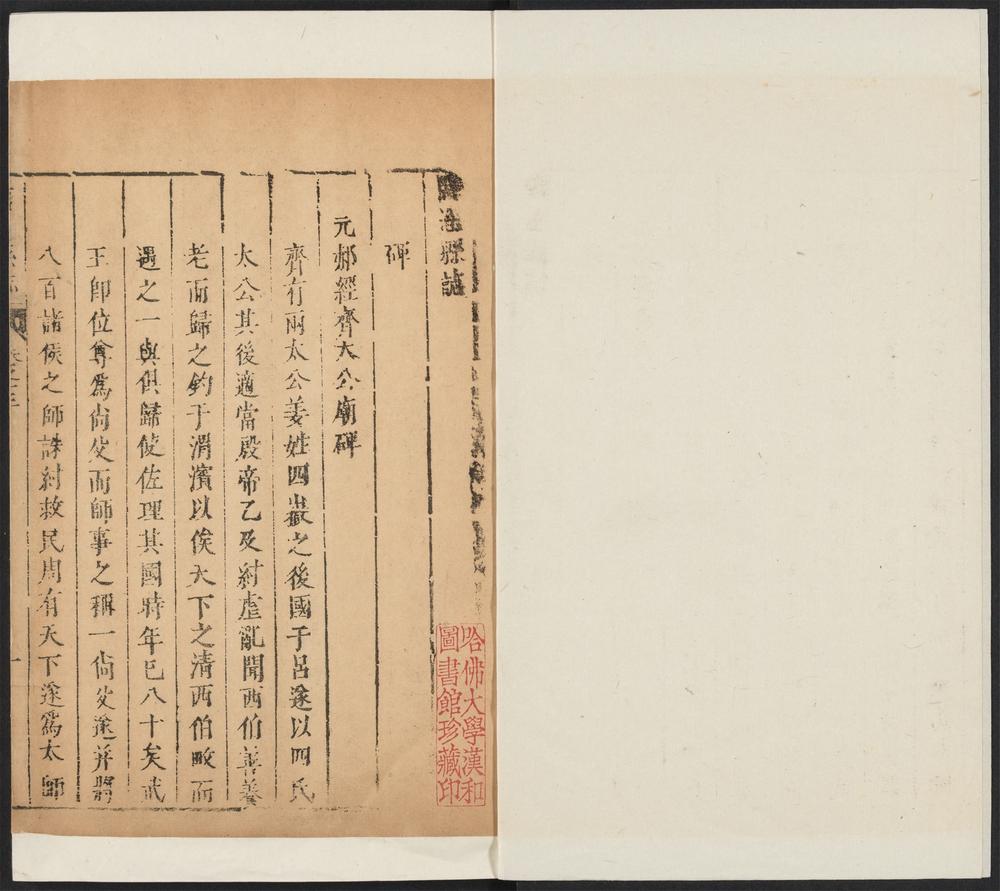 淄縣誌
碑
元郝經齊太公廟碑
齊有兩太公姜姓四嶽之後國于呂遂以四氏
太公其後適當殷帝乙及紂虐亂聞西伯善養
老而歸之釣于渭濱以俟天下之清西伯畋而
遇之一與俱歸使佐理其國時年已八十矣武
王即位尊爲尚父而師事之稱一尚父遂并將
八百諸侯之師誅紂救民周有天下遂爲太師
卷之三
一
哈佛大學漢和
圖書館珍藏印